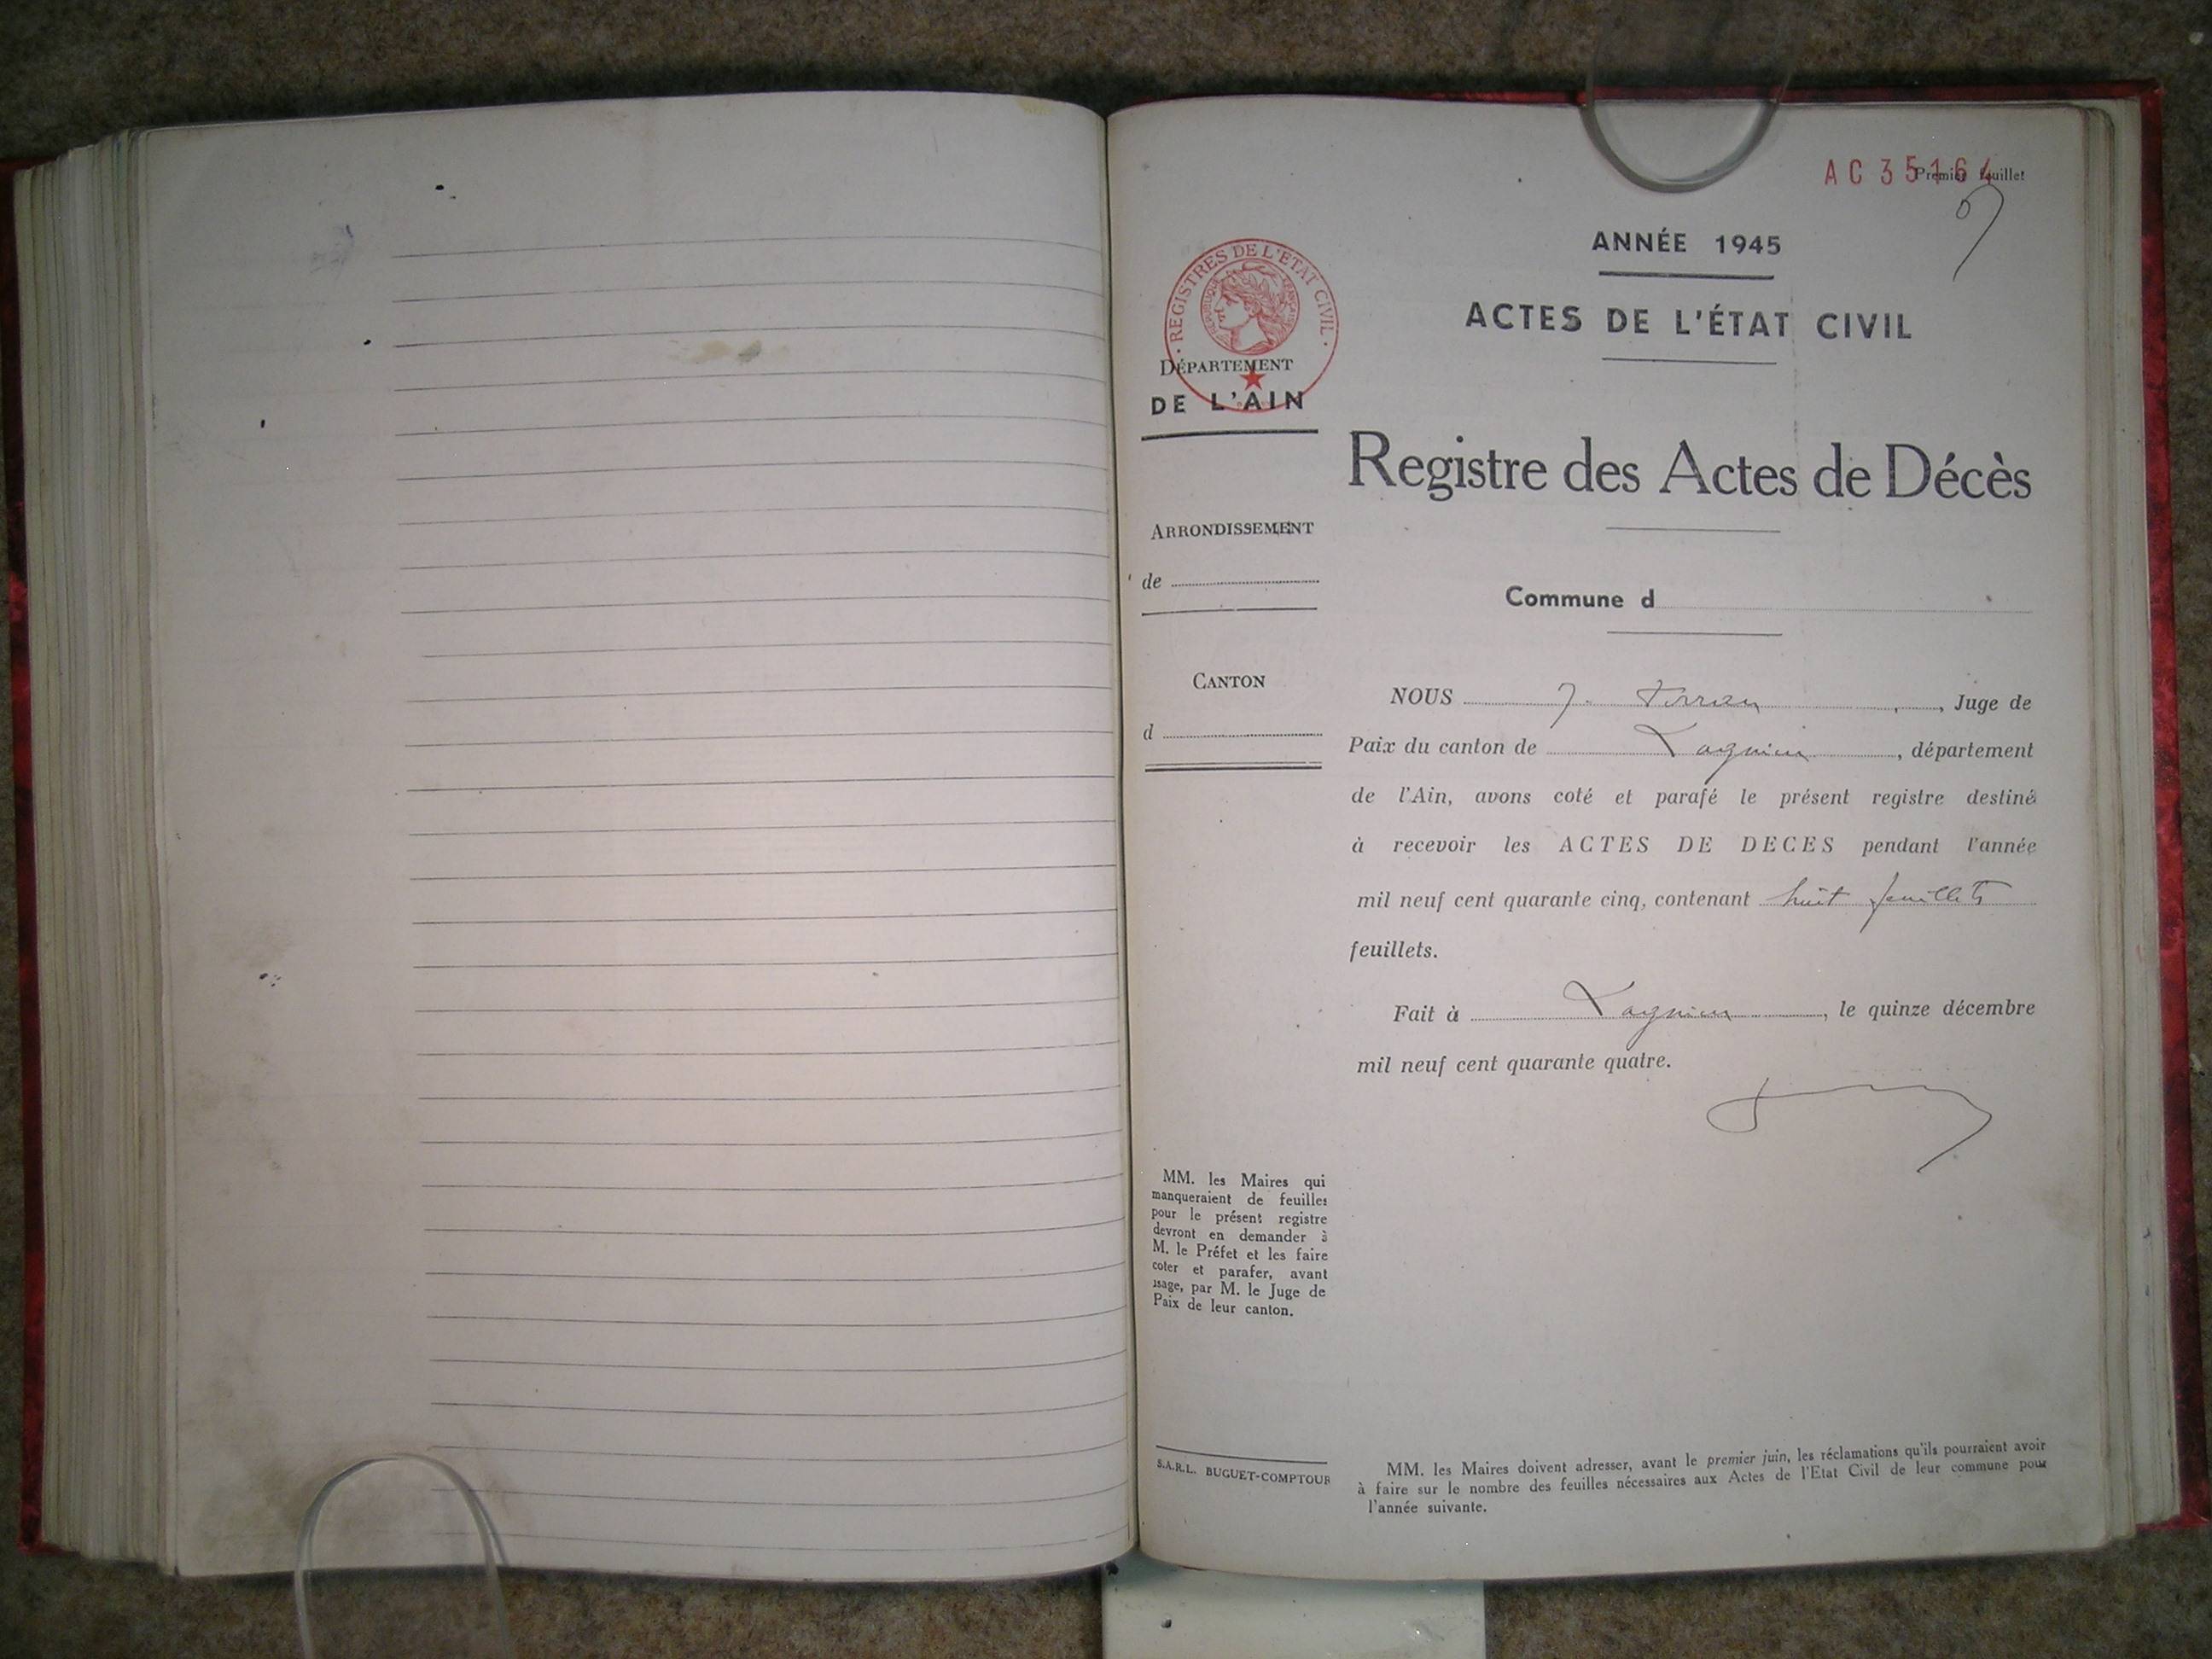 AC 35164
Premier feuillet
ANNÉE 1945
ACTES DE L'ÉTAT CIVIL
REGISTRES DE L'ÉTAT CIVIL
RÉPUBLIQUE FRANÇAISE
DÉPARTEMENT
DE L'AIN
Registre des Actes de Décès
ARRONDISSEMENT
de
Commune d
CANTON
d
NOUS J. , Juge de
Paix du canton de Lagnieu, département
de l'Ain, avons coté et parafé le présent registre destiné
à recevoir les ACTES DE DECES pendant l'année
mil neuf cent quarante cinq, contenant huit feuillets
feuillets.
Fait à Lagnieu, le quinze décembre
mil neuf cent quarante quatre.
MM. les Maires qui
manqueraient de feuilles
pour le présent registre
devront en demander à
M. le Préfet et les faire
coter et parafer, avant
usage, par M. le Juge de
Paix de leur canton.
S.A.R.L. BUGUET-COMPTOUR
MM. les Maires doivent adresser, avant le premier juin, les réclamations qu'ils pourraient avoir
à faire sur le nombre des feuilles nécessaires aux Actes de l'Etat Civil de leur commune pour
l'année suivante.